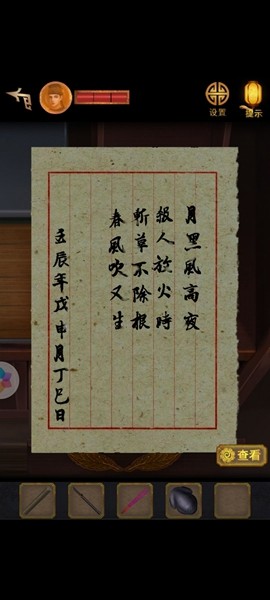 设置
提示
月黑風高夜
殺人放火時
斬草不除根
春風吹又生
壬辰年戊申月丁巳日
查看